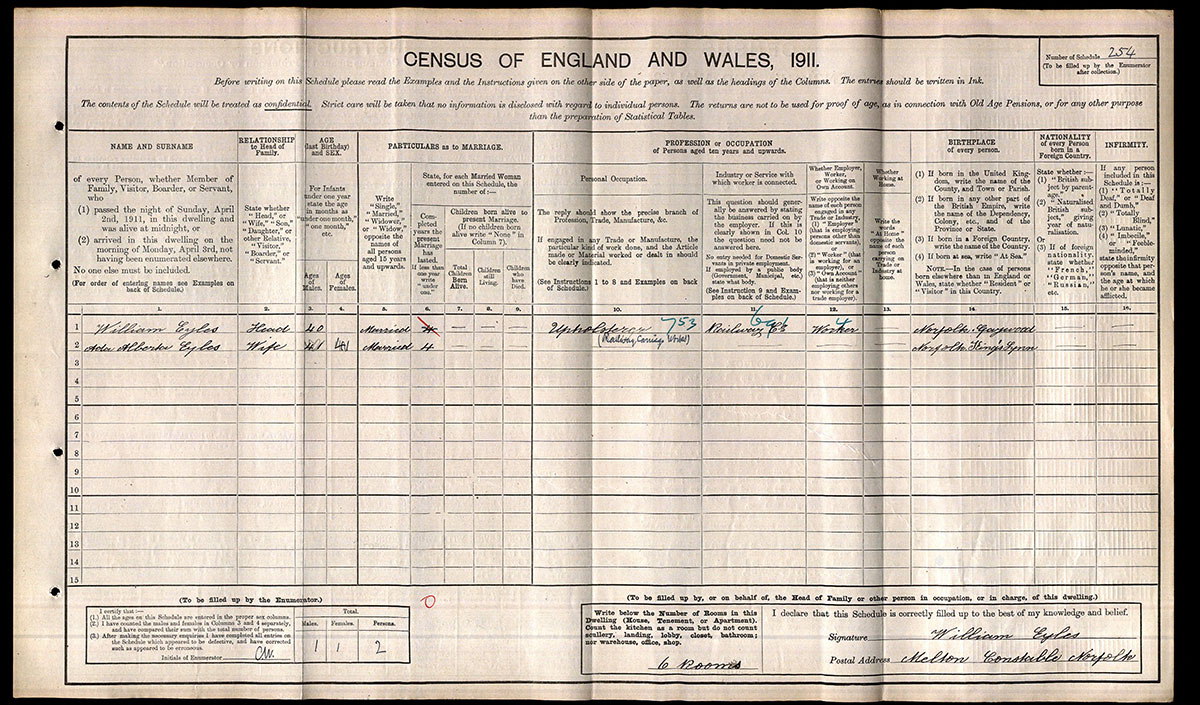 CENSUS OF ENGLAND AND WALES, 1911.
Number of Schedule 254
(To be filled up by the Enumerator
after collection.)
Before writing on this Schedule please read the Examples and the Instructions given on the other side of the paper, as well as the headings of the Columns. The entries should be written in Ink.
The contents of the Schedule will be treated as confidential. Strict care will be taken that no information is disclosed with regard to individual persons. The returns are not to be used for proof of age, as in connection with Old Age Pensions, or for any other purpose
than the preparation of Statistical Tables.
NAME AND SURNAME
of every Person, whether Member of
Family, Visitor, Boarder, or Servant,
who
(1) passed the night of Sunday, April
2nd, 1911, in this dwelling and
was alive at midnight, or
(2) arrived in this dwelling on the
morning of Monday, April 3rd, not
having been enumerated elsewhere.
No one else must be included.
(For order of entering names see Examples on
back of Schedule.)
1.
RELATIONSHIP
to Head of
Family.
State whether
"Head," or
"Wife," "Son,"
"Daughter," or
other Relative,
"Visitor,"
"Boarder," or
"Servant."
2.
AGE
(last Birthday)
and SEX.
For Infants
under one year
state the age
in months as
"under one month,"
"one month,"
etc.
Ages
of
Males.
Ages
of
Females.
3.
4.
PARTICULARS as to MARRIAGE.
Write
"Single,"
"Married,"
"Widower,"
or "Widow,"
opposite the
names of
all persons
aged 15 years
and upwards.
5.
State, for each Married Woman
entered on this Schedule, the
number of :—
Completed
years the
present
Marriage
has
lasted.
If less than
one year
write
"under
one."
6.
Children born alive to
present Marriage.
(If no children born
alive write "None" in
Column 7).
Total
Children
Born
Alive.
Children
still
Living.
Children
who
have
Died.
7.
8.
9.
PROFESSION or OCCUPATION
of Persons aged ten years and upwards.
Personal Occupation.
The reply should show the precise branch of
Profession, Trade, Manufacture, &c.
If engaged in any Trade or Manufacture, the
particular kind of work done, and the Article
made or Material worked or dealt in should
be clearly indicated.
(See Instructions 1 to 8 and Examples on back
of Schedule.)
10.
Industry or Service with
which worker is connected.
This question should gener-
ally be answered by stating
the business carried on by
the employer. If this is
clearly shown in Col. 10
the question need not be
answered here.
No entry needed for Domestic Ser-
vants in private employment.
If employed by a public body
(Government, Municipal, etc.)
state what body.
(See Instruction 9 and Exam-
ples on back of Schedule.)
11.
Whether Employer,
Worker,
or Working on
Own Account.
Write opposite the
name of each person
engaged in any
Trade or Industry,
(1) "Employer"
(that is employing
persons other than
domestic servants),
or
(2) "Worker" (that
is working for an
employer), or
(3) "Own Account"
(that is neither
employing others
nor working for a
trade employer).
12.
Whether
Working at
Home.
Write the
words
"At Home"
opposite the
name of each
person
carrying on
Trade or
Industry at
home.
13.
BIRTHPLACE
of every person.
(1) If born in the United King-
dom, write the name of the
County, and Town or Parish.
(2) If born in any other part of
the British Empire, write
the name of the Dependency,
Colony, etc., and of the
Province or State.
(3) If born in a Foreign Country,
write the name of the Country.
(4) If born at sea, write "At Sea."
NOTE.—In the case of persons
born elsewhere than in England or
Wales, state whether "Resident" or
"Visitor" in this Country.
14.
NATIONALITY
of every Person
born in a
Foreign Country.
State whether :—
(1) "British sub-
ject by parent-
age,"
(2) "Naturalised
British sub-
ject," giving
year of natu-
ralisation.
Or
(3) If of foreign
nationality,
state whether
"French,"
"German,"
"Russian,"
etc.
15.
INFIRMITY.
If any person
included in this
Schedule is :—
(1) "Totally
Deaf," or "Deaf
and Dumb,"
(2) "Totally
Blind,"
(3) "Lunatic,"
(4) "Imbecile,"
or "Feeble-
minded,"
state the infirmity
opposite that per-
son's name, and
the age at which
he or she became
afflicted.
16.
1 William Eyles Head 40 Married 4 — — — Upholsterer 753 Railway Co 691 Worker 4 — Norfolk Gaywood
(Railway Carriage Works)
2 Ada Alberta Eyles Wife 41 41 Married 4 — — — — — — Norfolk King's Lynn
3
4
5
6
7
8
9
10
11
12
13
14
15
0
(To be filled up by the Enumerator.)
I certify that :—
(1.) All the ages on this Schedule are entered in the proper sex columns.
(2.) I have counted the males and females in Columns 3 and 4 separately,
and have compared their sum with the total number of persons.
(3.) After making the necessary enquiries I have completed all entries on
the Schedule which appeared to be defective, and have corrected
such as appeared to be erroneous.
Initials of Enumerator
Total.
Males. Females. Persons.
1 1 2
(To be filled up by, or on behalf of, the Head of Family or other person in occupation, or in charge, of this dwelling.)
Write below the Number of Rooms in this
Dwelling (House, Tenement, or Apartment).
Count the kitchen as a room but do not count
scullery, landing, lobby, closet, bathroom;
nor warehouse, office, shop.
6 Rooms
I declare that this Schedule is correctly filled up to the best of my knowledge and belief.
Signature William Eyles
Postal Address Melton Constable Norfolk